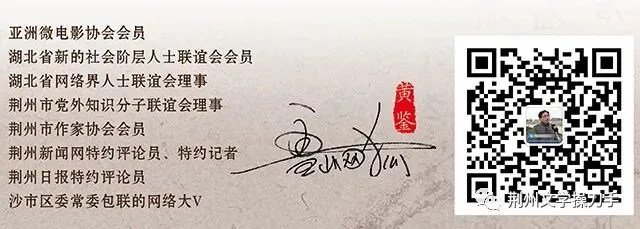 亚洲微电影协会会员
湖北省新的社会阶层人士联谊会会员
湖北省网络界人士联谊会理事
荆州市党外知识分子联谊会理事
荆州市作家协会会员
荆州新闻网特约评论员、特约记者
荆州日报特约评论员
沙市区委常委包联的网络大V
黄鉴
荆州文字操刀手